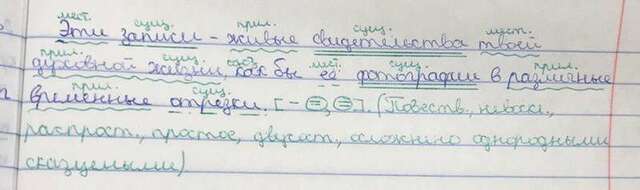 мест. сущ. прил. сущ. мест.
Эти записи – живые свидетельства твоей
прил. сущ. союз мест. сущ. прил.
духовной жизни, как бы её фотографии в различные
прил. сущ.
временные отрезки. [ – =, = ]. (Повеств., невоскл.,
распрост., простое, двусост., осложнено однородными
сказуемыми)